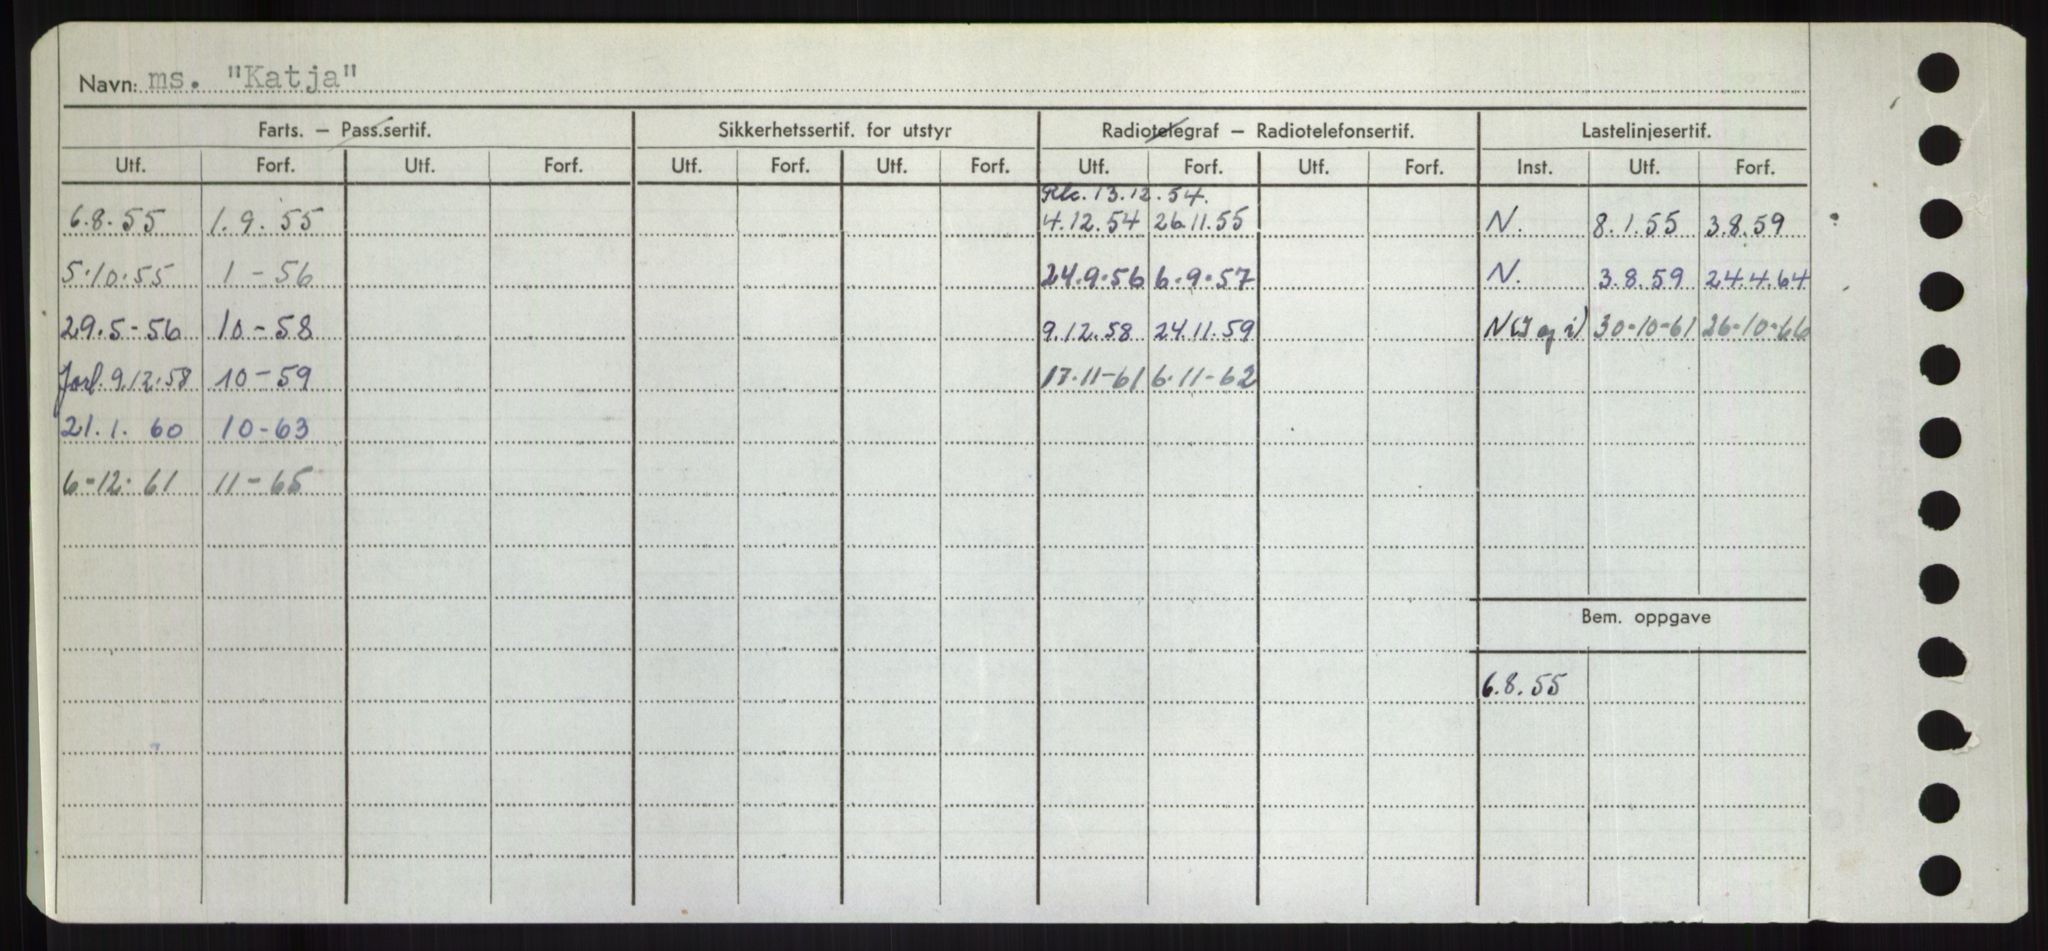 Navn: ms. "Katja"
Farts. – Pass.sertif. Sikkerhetssertif. for utstyr Radiotelegraf – Radiotelefonsertif. Lastelinjesertif.
Utf. Forf. Utf. Forf. Utf. Forf. Utf. Forf. Utf. Forf. Utf. Forf. Inst. Utf. Forf.
13.12.54.
6.8.55 1.9.55 4.12.54 26.11.55 N. 8.1.55 3.8.59
5.10.55 1-56 24.9.56 6.9.57 N. 3.8.59 24.4.64
29.5-56 10-58 9.12.58 24.11.59 N (I og i) 30-10-61 26-10-66
Forl. 9.12.58 10-59 17-11-61 6-11-62
21.1.60 10-63
6-12-61 11-65
Bem. oppgave
6.8.55